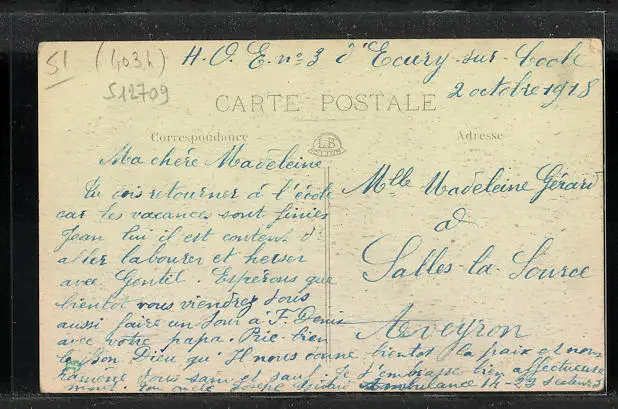 51 (403h)
S12709
H.O.E. n° 3 d'Ecury-sur-Coole
2 octobre 1918
CARTE POSTALE
Correspondance
LB
Adresse
Ma chére Madeleine
Tu vas retourner á l'école
car les vacances sont finies
Jean lui il est content d'
aller labourer et herser
avec Gentil. Espérons que
bientot vous viendrez tous
aussi faire un tour a F. Denis
avec votre papa. Prie bien
le Bon Dieu qu'Il nous donne bientot la paix et nous
raméne tous sain et sauf. Je t'embrasse bien affectueuse
ment. ton oncle Joseph Ambulance 14-23 Secteur 3
Mlle Madeleine Gérard
á
Salles-la-Source
Aveyron